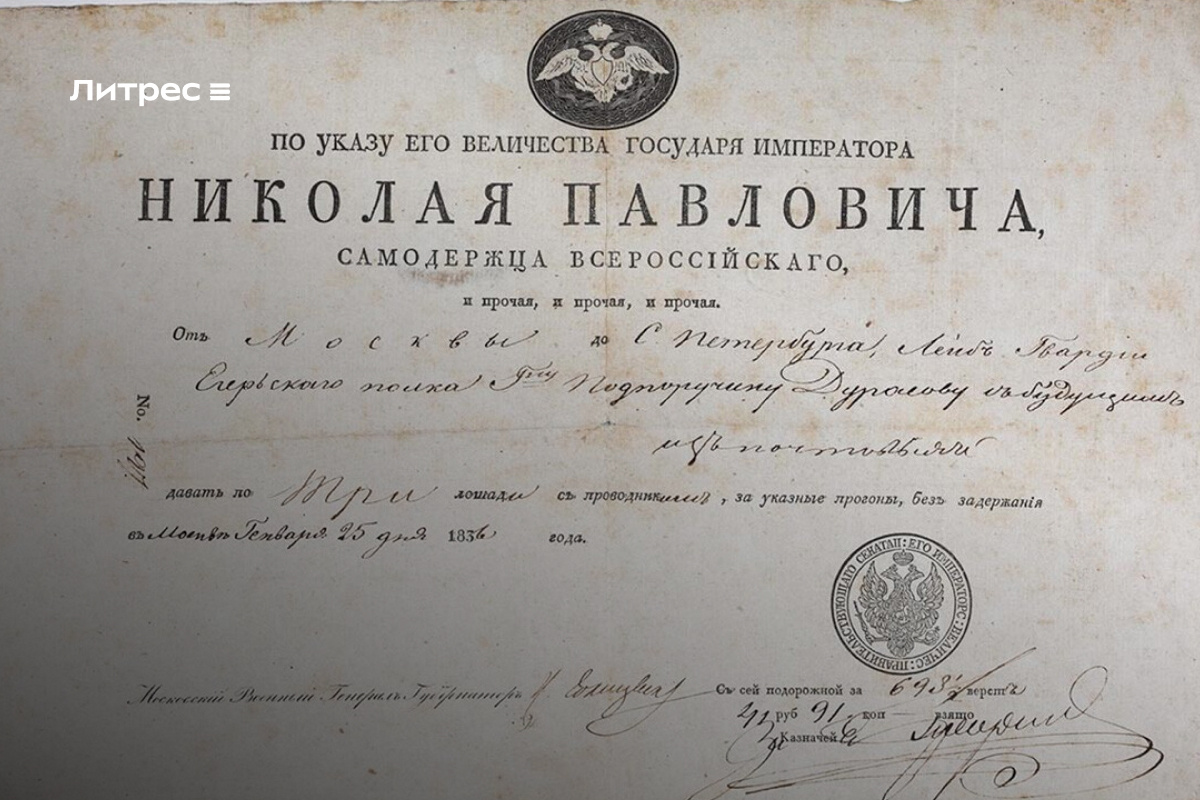 Литрес
ПО УКАЗУ ЕГО ВЕЛИЧЕСТВА ГОСУДАРЯ ИМПЕРАТОРА
НИКОЛАЯ ПАВЛОВИЧА,
САМОДЕРЖЦА ВСЕРОССІЙСКАГО,
и прочая, и прочая, и прочая.
Отъ Москвы до С Петербурга, Лейбъ Гвардіи
Егерьскаго полка Гну Подпоручику Дурасову съ будущимъ
изъ почтовыхъ
No.
давать по три лошади съ проводникомъ, за указные прогоны, безъ задержанія
въ Москвѣ Генваря 25 дня 1836 года.
ПРАВИТЕЛЬСТВУЮЩАГО СЕНАТА П: ЕГО ИМПЕРАТОРС: ВЕЛИЧЕС:
Московскій Военный Генералъ Губернаторъ
Съ сей подорожной за 698 верстъ
руб 91 коп взято
Казначей